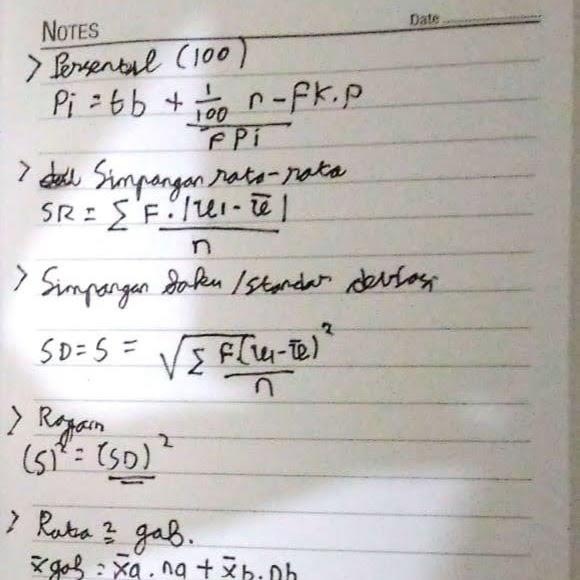 NOTES
Date
> Persentil (100)
Pi = tb + 1/100 n - Fk . p
F Pi
> Simpangan rata-rata
SR = Σ F . |xi - x̄|
n
> Simpangan Baku / standar deviasi
SD = S = √Σ F(xi - x̄)²
n
> Ragam
(S)² = (SD)²
> Rata² gab.
x̄gab = x̄a . na + x̄b . nb